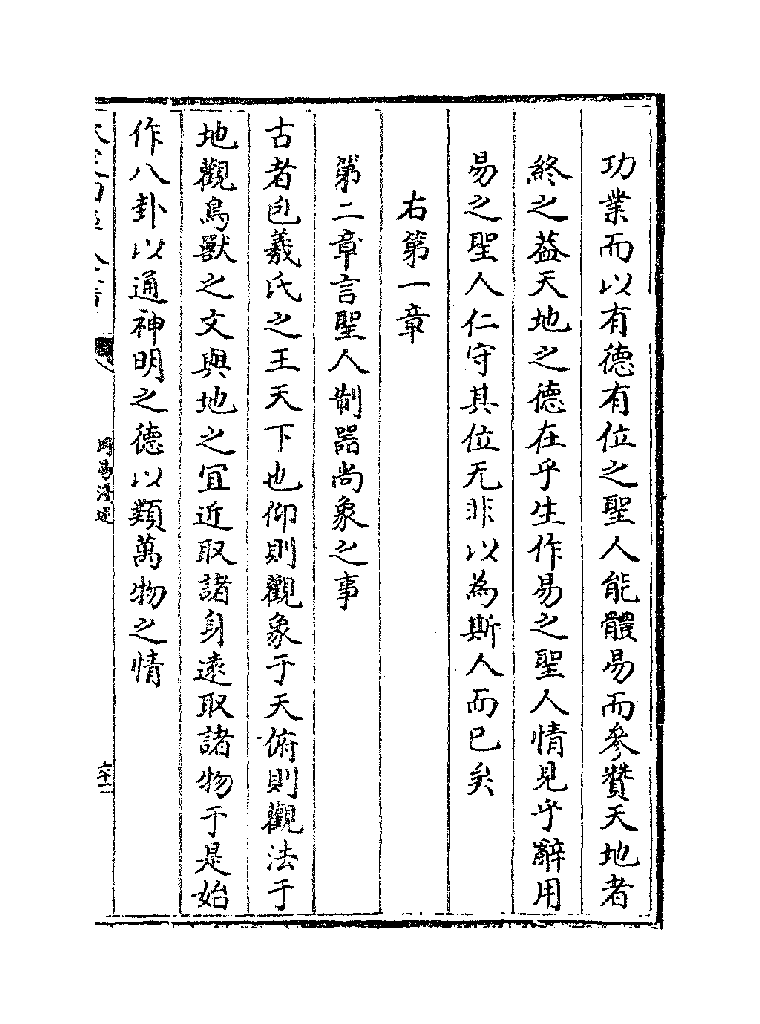 功業而以有德有位之聖人能體易而參贊天地者
終之葢天地之德在乎生作易之聖人情見乎辭用
易之聖人仁守其位无非以為斯人而已矣
右第一章
第二章言聖人制器尚象之事
古者包羲氏之王天下也仰則觀象于天俯則觀法于
地觀鳥獸之文與地之宜近取諸身遠取諸物于是始
作八卦以通神明之德以類萬物之情
周易淺述